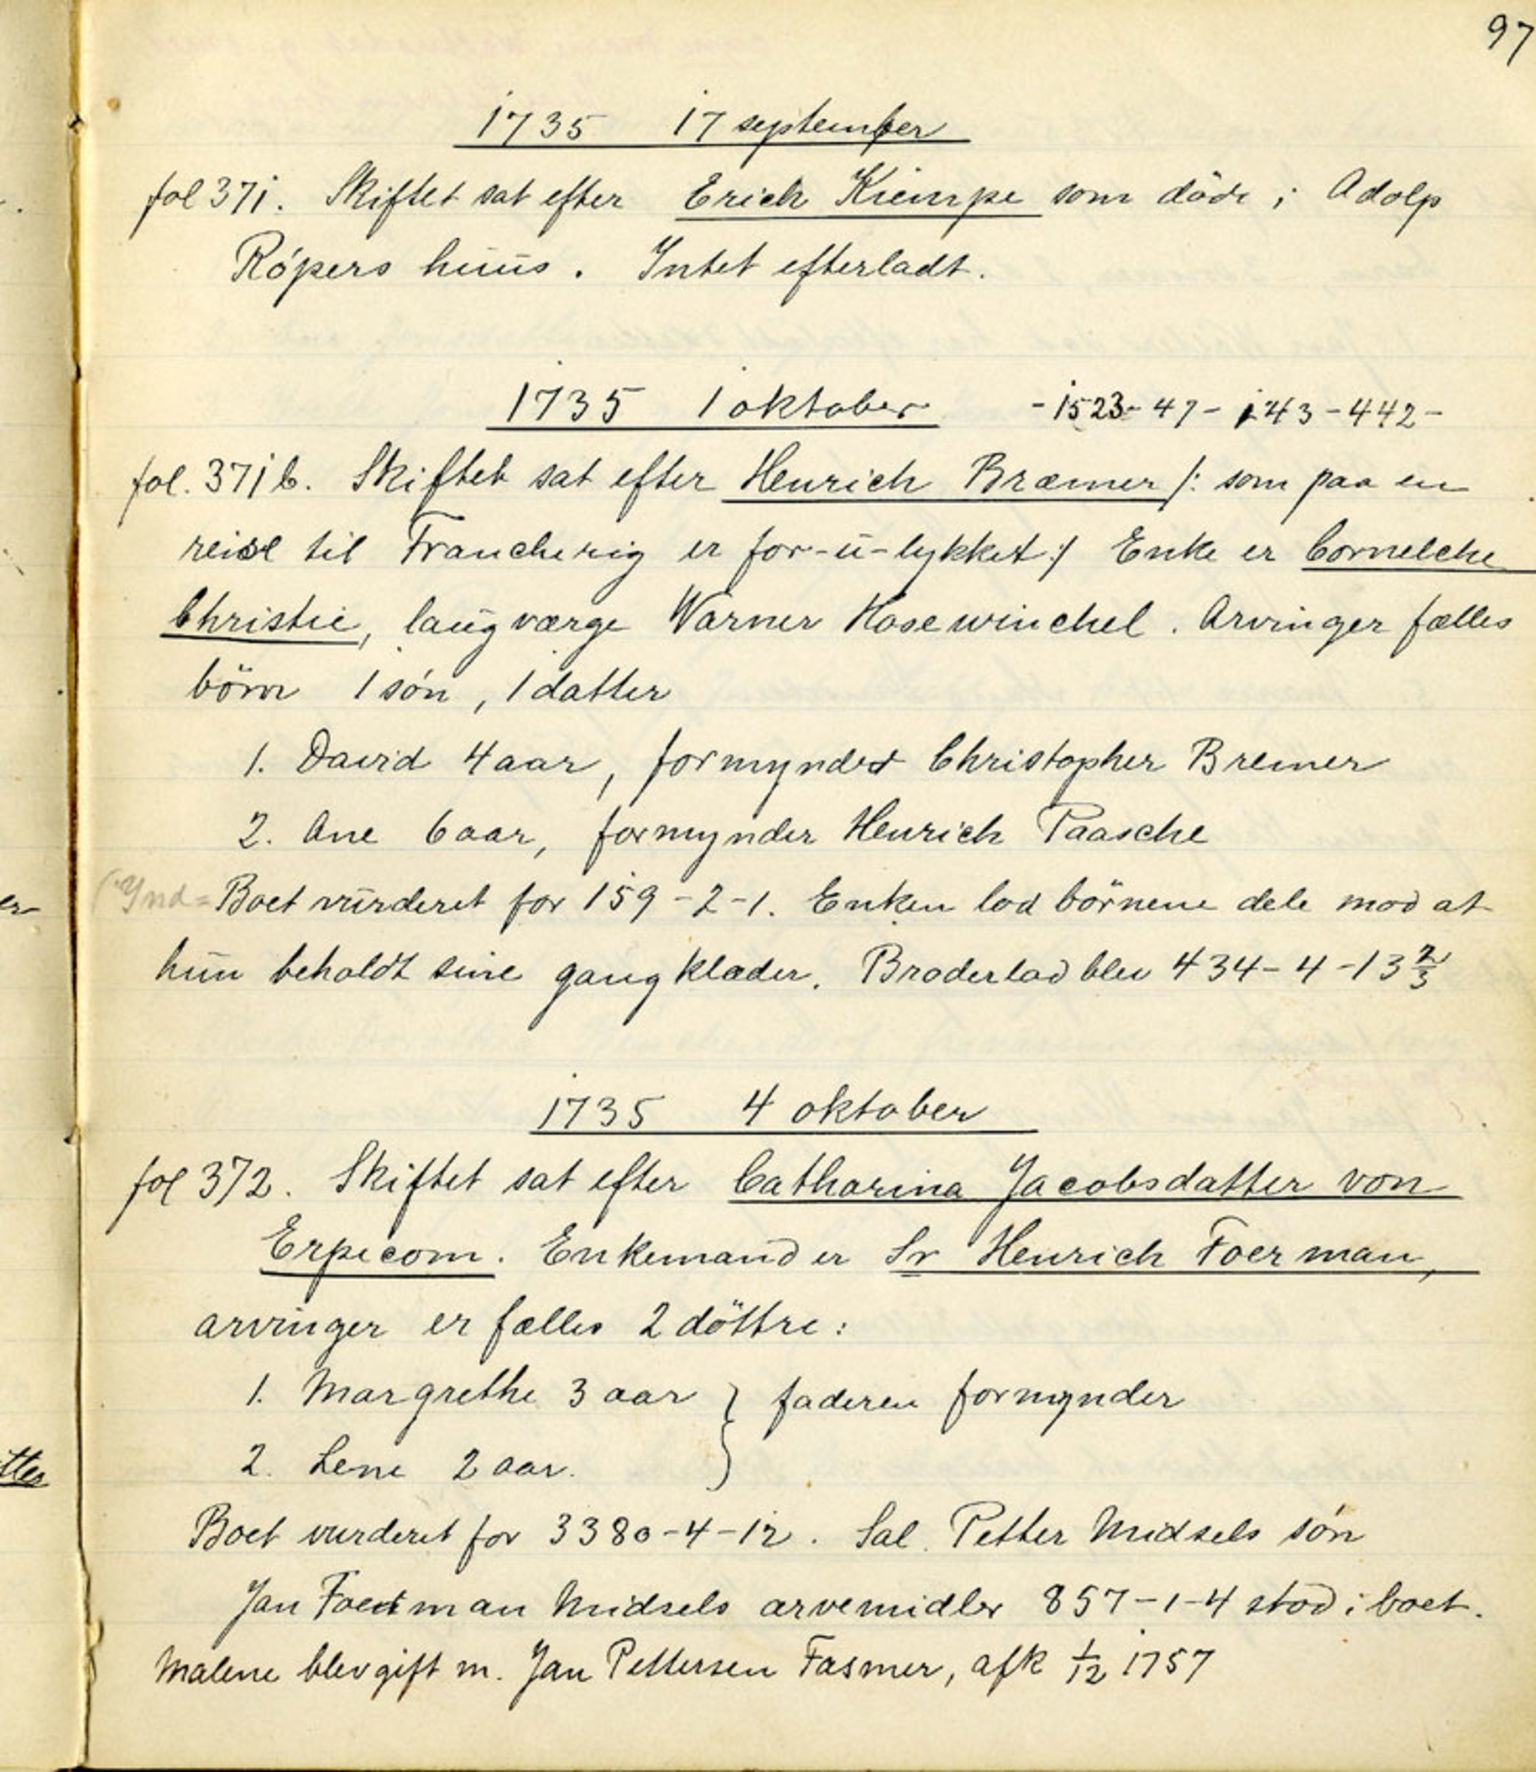 97
1735 17 september
fol 371. Skiftet sat efter Erich Kiempe som döde i Adolp
Röpers huus. Intet efterladt.
1735 1 oktober -1523-47-143-442-
fol. 371 b. Skiftet sat efter Henrich Bræmer /: som paa en
reise til Franckerig er for-u-lykket :/ Enke er Cornelche
Christie, laugværge Warner Hosewinckel. Arvinger fælles
börn 1 sön, 1 datter
1. David 4 aar, formynder Christopher Bremer
2. Ane 6 aar, formynder Henrich Paasche
Boet vurderet for 159-2-1. Enken lod börnene dele mod at
hun beholdt sine gangklæder. Broderlod blev 434-4-13 2/3
1735 4 oktober
fol 372. Skiftet sat efter Catharina Jacobsdatter von
Erpecom. Enkemand er Sr Henrich Foerman,
arvinger er fælles 2 döttre:
1. Margrethe 3 aar } faderen formynder
2. Lene 2 aar.
Boet vurderet for 3380-4-12. Sal. Petter Midsels sön
Jan Foerman Midsels arvemidler 857-1-4 stod i boet.
Malene blev gift m. Jan Pettersen Fasmer, afk 1/12 1757